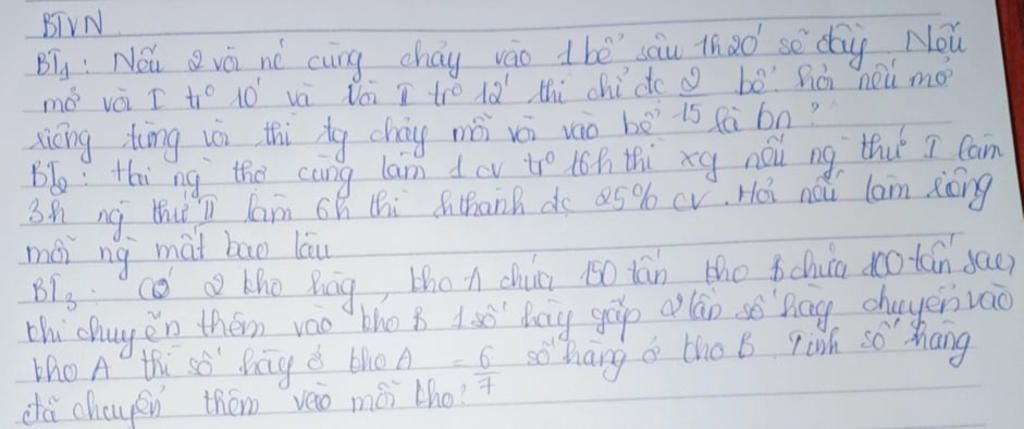 BTVN
BT1: Nếu 2 vòi nc cùng chảy vào 1 bể sau 1h20' sẽ đầy. Nếu
mở vòi I tr° 10' và vòi II tr° 12' thì chỉ đc 2 bể. Hỏi nếu mở
riêng từng vòi thì tg chảy mỗi vòi vào bể 15 là bn?
BT2: Hai ng thợ cùng làm 1 cv tr° 16h thì xg nếu ng thứ I làm
3h ng thứ II làm 6h thì hthành đc 25% cv. Hỏi nếu làm riêng
mỗi ng mất bao lâu
BT3: Có 2 kho hàg, kho A chứa 150 tấn kho B chứa 100 tấn sau
khi chuyển thêm vào kho B 1 số hàg gấp 2 lần số hàg chuyển vào
kho A thì số hàg ở kho A = 6/7 số hàng ở kho B. Tính số hàng
đã chuyển thêm vào mỗi kho?